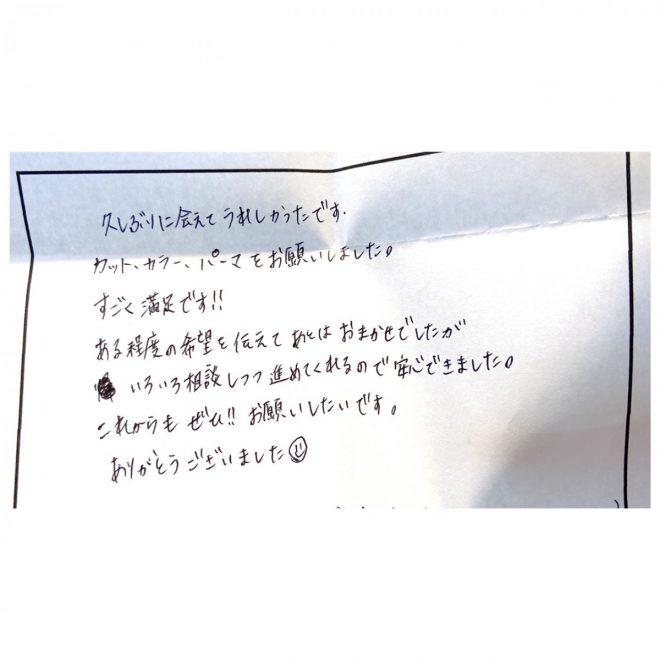 久しぶりに会えてうれしかったです.
カット、カラー、パーマをお願いしました。
すごく満足です!!
ある程度の希望を伝えてあとはおまかせでしたが
いろいろ相談しつつ進めてくれるので安心できました。
これからもぜひ!!お願いしたいです。
ありがとうございました☺